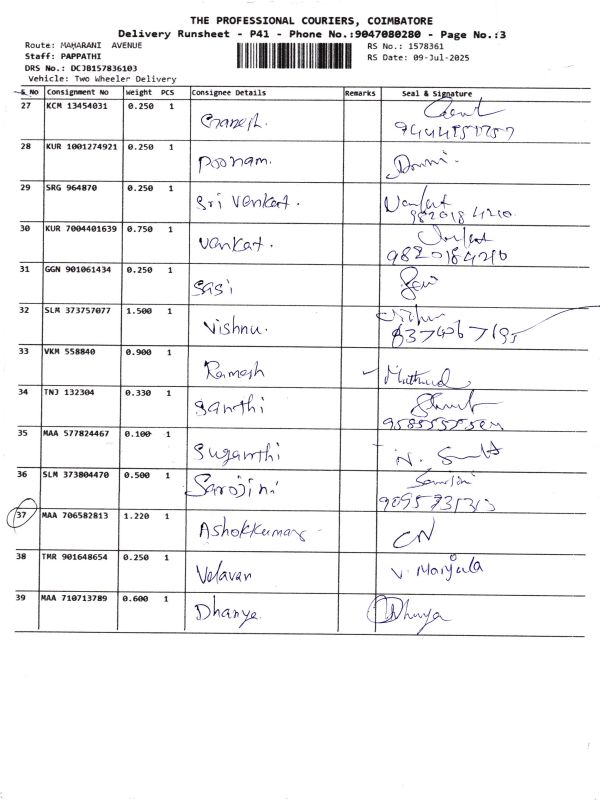 THE PROFESSIONAL COURIERS, COIMBATORE
Delivery Runsheet - P41 - Phone No.:9047080280 - Page No.:3
Route: MAHARANI AVENUE
RS No.: 1578361
Staff: PAPPATHI
RS Date: 09-Jul-2025
DRS No.: DCJB157836103
Vehicle: Two Wheeler Delivery
S.No Consignment No Weight PCS Consignee Details Remarks Seal & Signature
27 KCM 13454031 0.250 1 Ganesh.
28 KUR 1001274921 0.250 1 Poonam.
29 SRG 964870 0.250 1 Sri Venkat. Venkat
9820184210.
30 KUR 7004401639 0.750 1 Venkat. Venkat
9820184210
31 GGN 901061434 0.250 1 Sasi
32 SLM 373757077 1.500 1 Vishnu.
33 VKM 558840 0.900 1 Ramesh
34 TNJ 132304 0.330 1 Santhi
35 MAA 577824467 0.100 1 Suganthi
36 SLM 373804470 0.500 1 Sarojini
37 MAA 706582813 1.220 1 Ashokkumar CN
38 TMR 901648654 0.250 1 Velavan V. Manjula
39 MAA 710713789 0.600 1 Dhanya. Dhanya